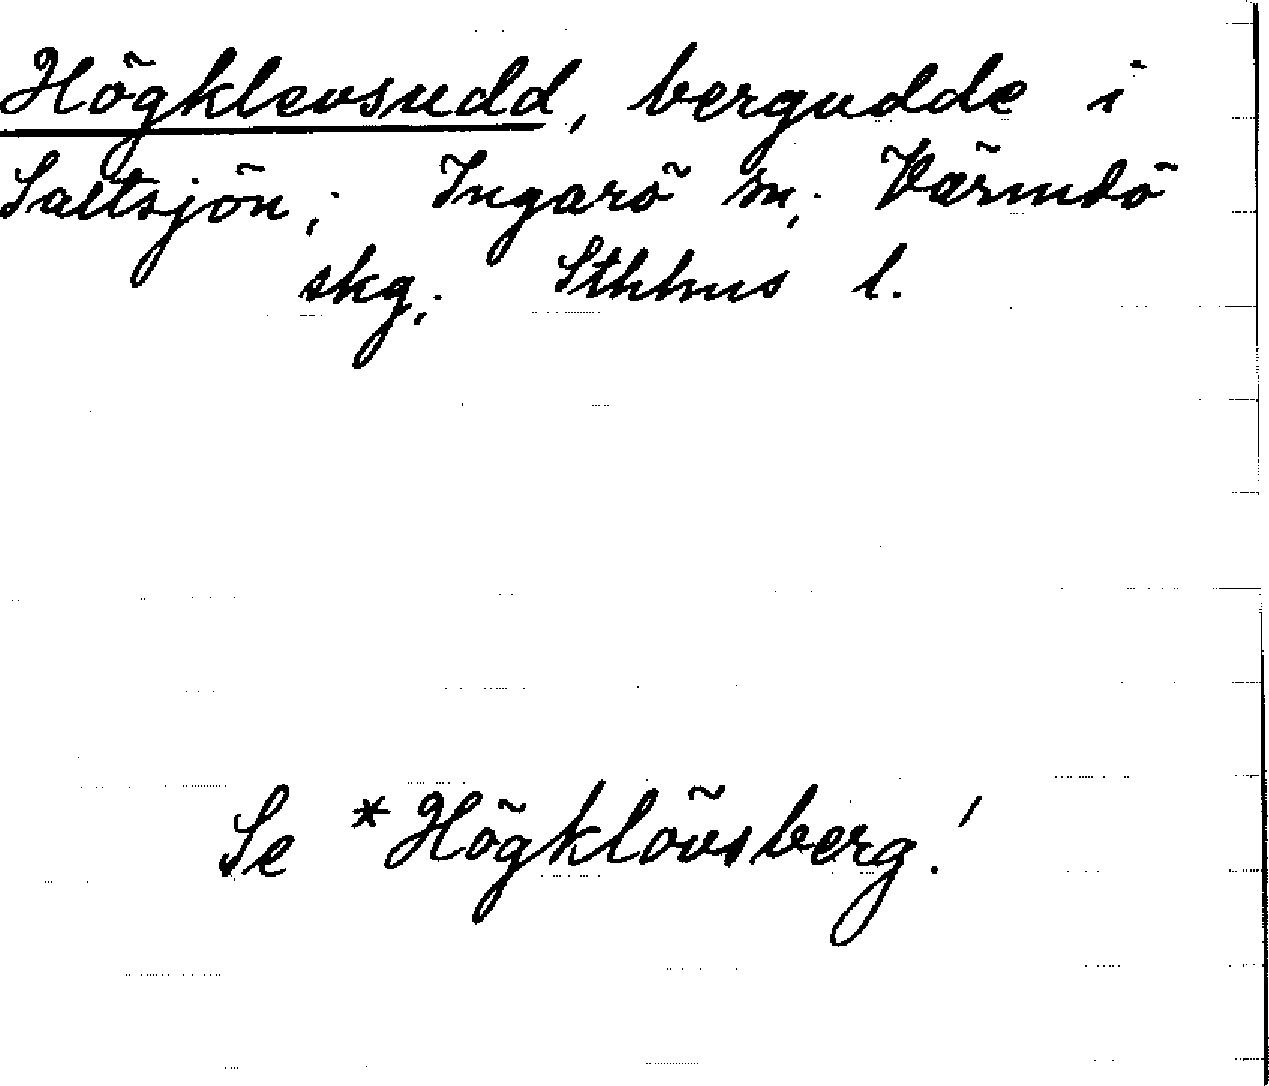 Högklevsudd, bergudde i
Saltsjön; Ingarö sn; Värmdö
skg; Sthhns l.
Se *Högklövsberg!